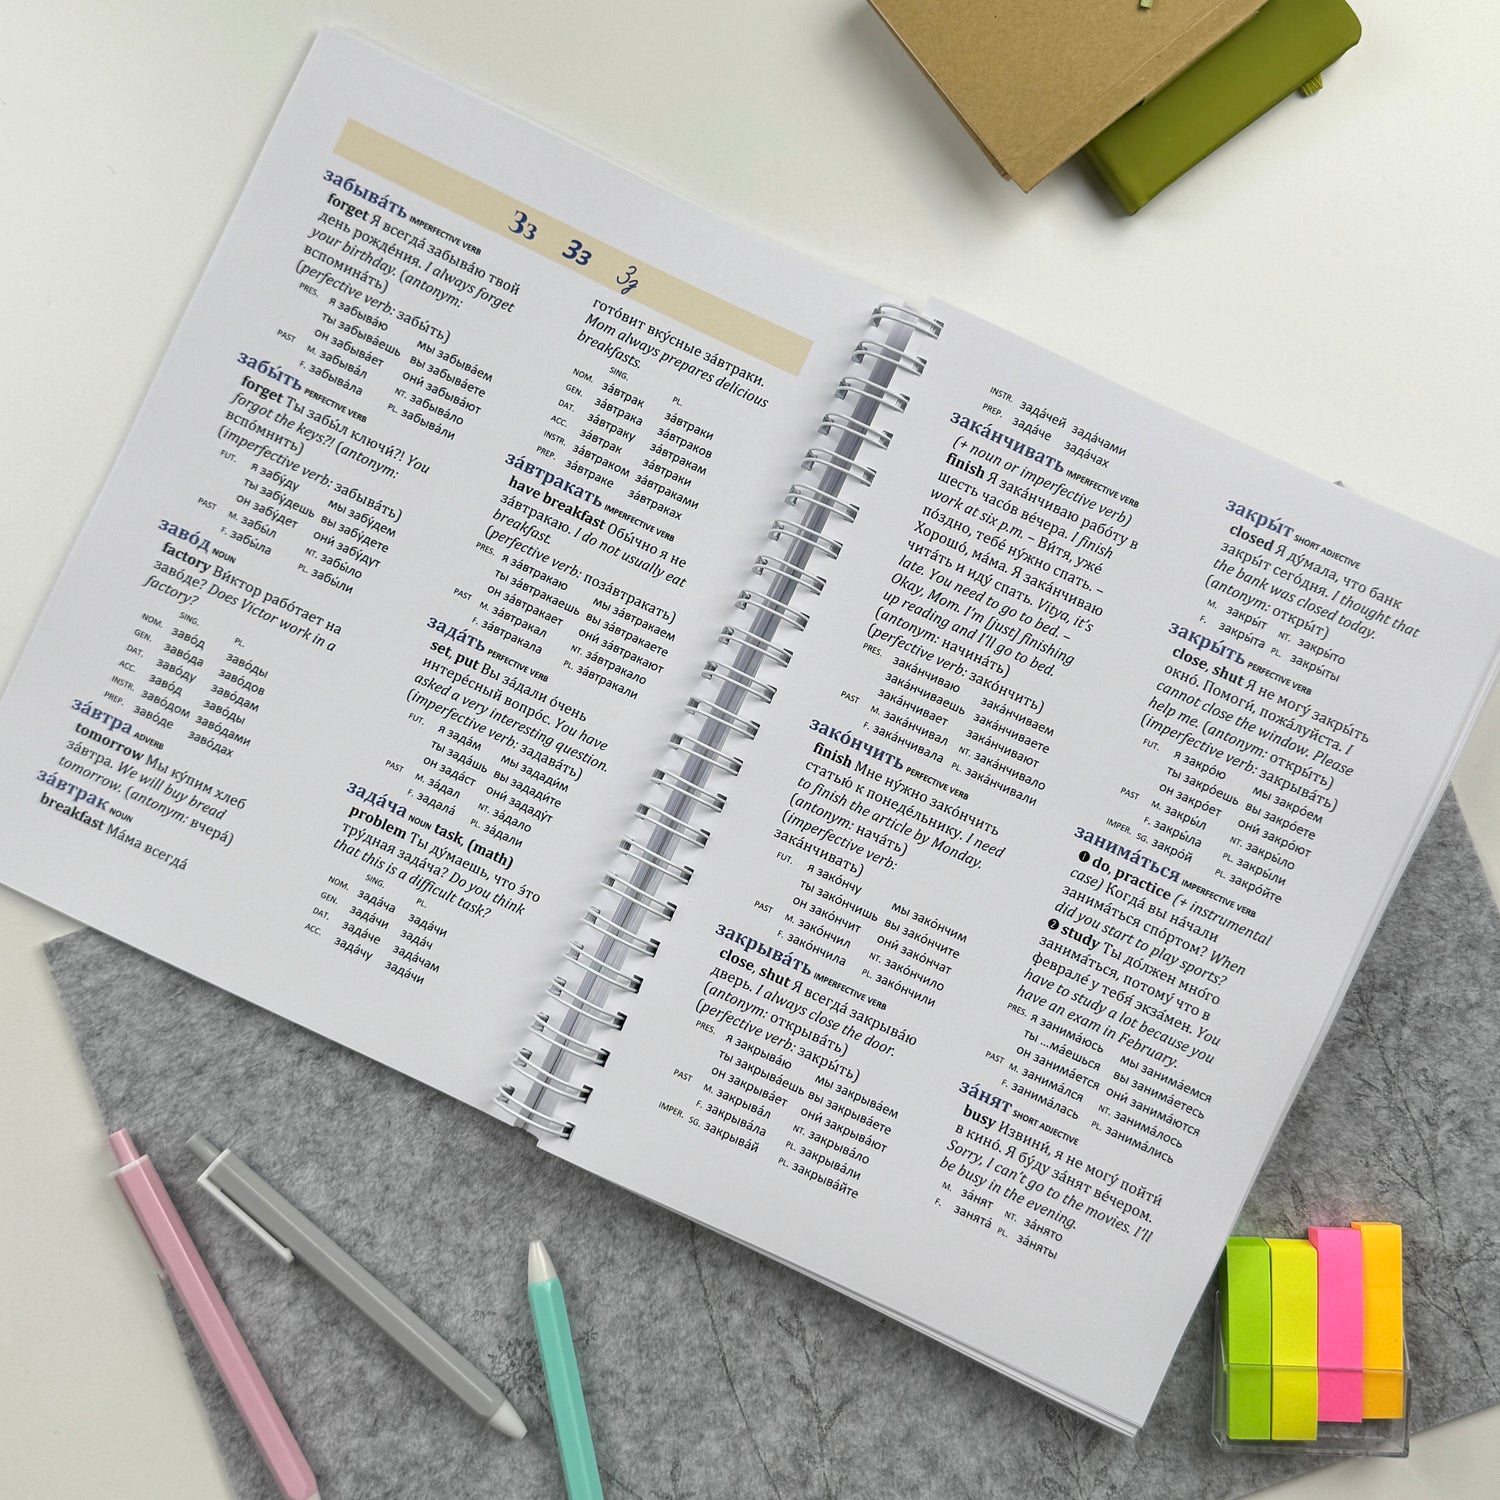 Зз Зз Зз
забыва́ть IMPERFECTIVE VERB
forget Я всегда́ забыва́ю твой
день рожде́ния. I always forget
your birthday. (antonym:
вспомина́ть)
(perfective verb: забы́ть)
PRES. я забыва́ю мы забыва́ем
ты забыва́ешь вы забыва́ете
он забыва́ет они́ забыва́ют
PAST M. забыва́л NT. забыва́ло
F. забыва́ла PL. забыва́ли
забы́ть PERFECTIVE VERB
forget Ты забы́л ключи́?! You
forgot the keys?! (antonym:
вспо́мнить)
(imperfective verb: забыва́ть)
FUT. я забу́ду мы забу́дем
ты забу́дешь вы забу́дете
он забу́дет они́ забу́дут
PAST M. забы́л NT. забы́ло
F. забы́ла PL. забы́ли
заво́д NOUN
factory Ви́ктор рабо́тает на
заво́де? Does Victor work in a
factory?
SING. PL.
NOM. заво́д заво́ды
GEN. заво́да заво́дов
DAT. заво́ду заво́дам
ACC. заво́д заво́ды
INSTR. заво́дом заво́дами
PREP. заво́де заво́дах
за́втра ADVERB
tomorrow Мы ку́пим хлеб
за́втра. We will buy bread
tomorrow. (antonym: вчера́)
за́втрак NOUN
breakfast Ма́ма всегда́
гото́вит вку́сные за́втраки.
Mom always prepares delicious
breakfasts.
SING. PL.
NOM. за́втрак за́втраки
GEN. за́втрака за́втраков
DAT. за́втраку за́втракам
ACC. за́втрак за́втраки
INSTR. за́втраком за́втраками
PREP. за́втраке за́втраках
за́втракать IMPERFECTIVE VERB
have breakfast Обы́чно я не
за́втракаю. I do not usually eat
breakfast.
(perfective verb: поза́втракать)
PRES. я за́втракаю мы за́втракаем
ты за́втракаешь вы за́втракаете
он за́втракает они́ за́втракают
PAST M. за́втракал NT. за́втракало
F. за́втракала PL. за́втракали
зада́ть PERFECTIVE VERB
set, put Вы за́дали о́чень
интере́сный вопро́с. You have
asked a very interesting question.
(imperfective verb: задава́ть)
FUT. я зада́м мы задади́м
ты зада́шь вы задади́те
он зада́ст они́ зададу́т
PAST M. за́дал NT. за́дало
F. задала́ PL. за́дали
зада́ча NOUN task, (math)
problem Ты ду́маешь, что э́то
тру́дная зада́ча? Do you think
that this is a difficult task?
SING. PL.
NOM. зада́ча зада́чи
GEN. зада́чи зада́ч
DAT. зада́че зада́чам
ACC. зада́чу зада́чи
INSTR. зада́чей зада́чами
PREP. зада́че зада́чах
зака́нчивать IMPERFECTIVE VERB
(+ noun or imperfective verb)
finish Я зака́нчиваю рабо́ту в
шесть часо́в ве́чера. I finish
work at six p.m. – Ви́тя, уже́
по́здно, тебе́ ну́жно спать. –
Хорошо́, ма́ма. Я зака́нчиваю
чита́ть и иду́ спать. Vitya, it's
late. You need to go to bed. –
Okay, Mom. I'm [just] finishing
up reading and I'll go to bed.
(antonym: начина́ть)
(perfective verb: зако́нчить)
PRES. зака́нчиваю зака́нчиваем
зака́нчиваешь зака́нчиваете
зака́нчивает зака́нчивают
PAST M. зака́нчивал NT. зака́нчивало
F. зака́нчивала PL. зака́нчивали
зако́нчить PERFECTIVE VERB
finish Мне ну́жно зако́нчить
статью́ к понеде́льнику. I need
to finish the article by Monday.
(antonym: нача́ть)
(imperfective verb:
зака́нчивать)
FUT. я зако́нчу мы зако́нчим
ты зако́нчишь вы зако́нчите
он зако́нчит они́ зако́нчат
PAST M. зако́нчил NT. зако́нчило
F. зако́нчила PL. зако́нчили
закрыва́ть IMPERFECTIVE VERB
close, shut Я всегда́ закрыва́ю
дверь. I always close the door.
(antonym: открыва́ть)
(perfective verb: закры́ть)
PRES. я закрыва́ю мы закрыва́ем
ты закрыва́ешь вы закрыва́ете
он закрыва́ет они́ закрыва́ют
PAST M. закрыва́л NT. закрыва́ло
F. закрыва́ла PL. закрыва́ли
IMPER. SG. закрыва́й PL. закрыва́йте
закры́т SHORT ADJECTIVE
closed Я ду́мала, что банк
закры́т сего́дня. I thought that
the bank was closed today.
(antonym: откры́т)
M. закры́т NT. закры́то
F. закры́та PL. закры́ты
закры́ть PERFECTIVE VERB
close, shut Я не могу́ закры́ть
окно́. Помоги́, пожа́луйста. I
cannot close the window. Please
help me. (antonym: откры́ть)
(imperfective verb: закрыва́ть)
FUT. я закро́ю мы закро́ем
ты закро́ешь вы закро́ете
он закро́ет они́ закро́ют
PAST M. закры́л NT. закры́ло
F. закры́ла PL. закры́ли
IMPER. SG. закро́й PL. закро́йте
занима́ться IMPERFECTIVE VERB
❶ do, practice (+ instrumental
case) Когда́ вы на́чали
занима́ться спо́ртом? When
did you start to play sports?
❷ study Ты до́лжен мно́го
занима́ться, потому́ что в
феврале́ у тебя́ экза́мен. You
have to study a lot because you
have an exam in February.
PRES. я занима́юсь мы занима́емся
ты ...ма́ешься вы занима́етесь
он занима́ется они́ занима́ются
PAST M. занима́лся NT. занима́лось
F. занима́лась PL. занима́лись
за́нят SHORT ADJECTIVE
busy Извини́, я не могу́ пойти́
в кино́. Я бу́ду за́нят ве́чером.
Sorry, I can't go to the movies. I'll
be busy in the evening.
M. за́нят NT. за́нято
F. занята́ PL. за́няты